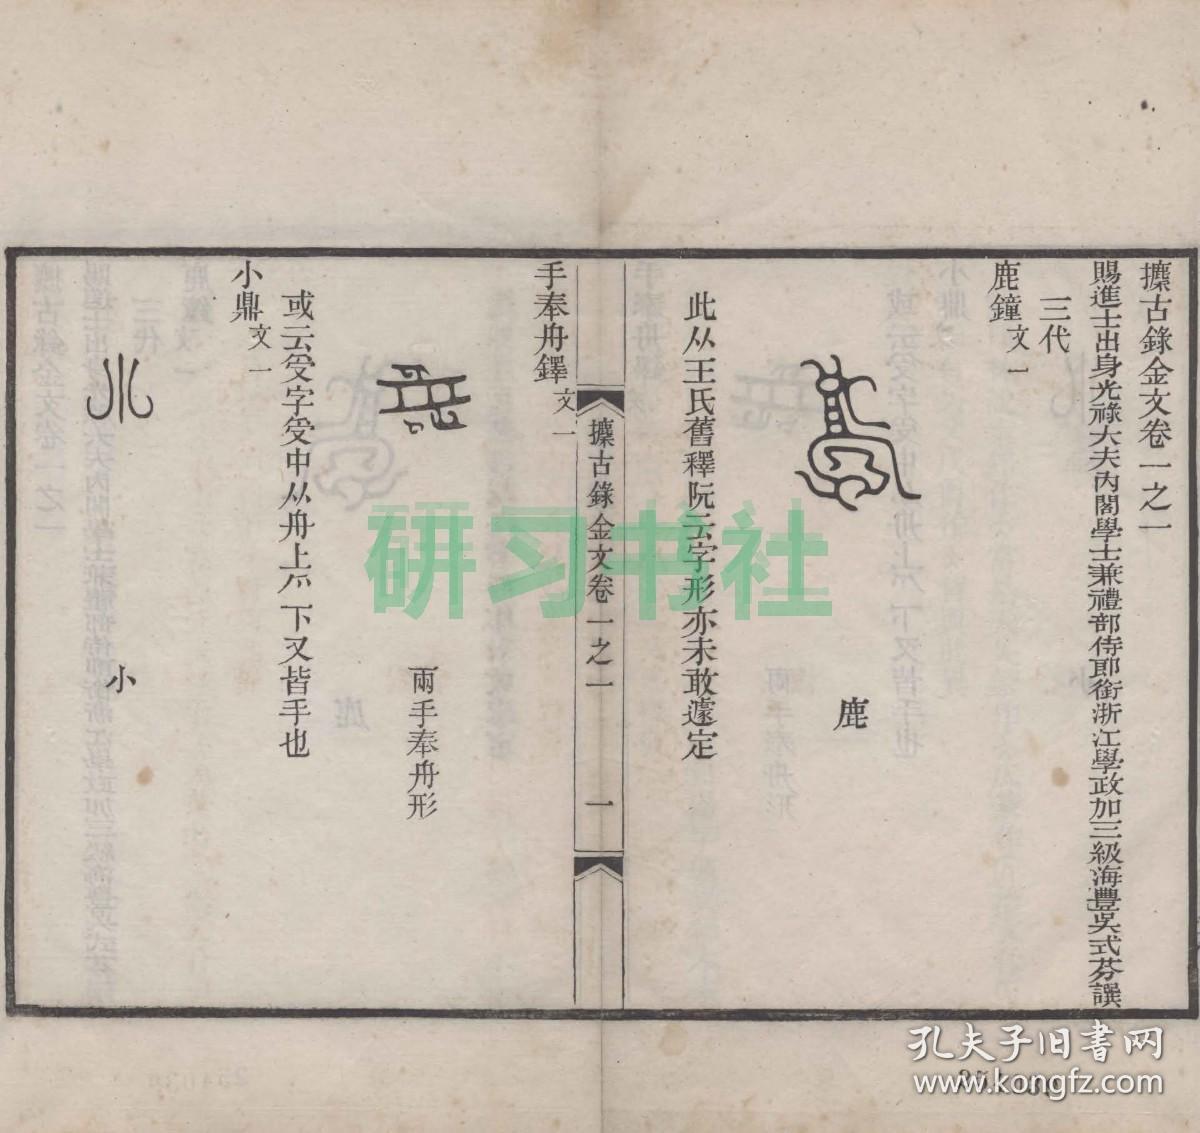 攈古錄金文卷一之一
賜進士出身光祿大夫內閣學士兼禮部侍郎銜浙江學政加三級海豐吳式芬譔
三代
鹿鐘文一
鹿
此从王氏舊釋阮云字形亦未敢遽定
攈古錄金文卷一之一
一
手奉舟鐸文一
兩手奉舟形
或云受字受中从舟上爫下又皆手也
小鼎文一
小
研习书社
孔夫子旧书网
www.kongfz.com